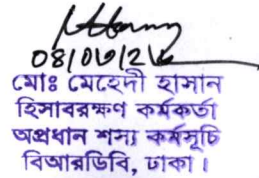 মোঃ মেহেদী হাসান
হিসাবরক্ষণ কর্মকর্তা
অপ্রধান শস্য কর্মসূচি
বিআরডিবি, ঢাকা।